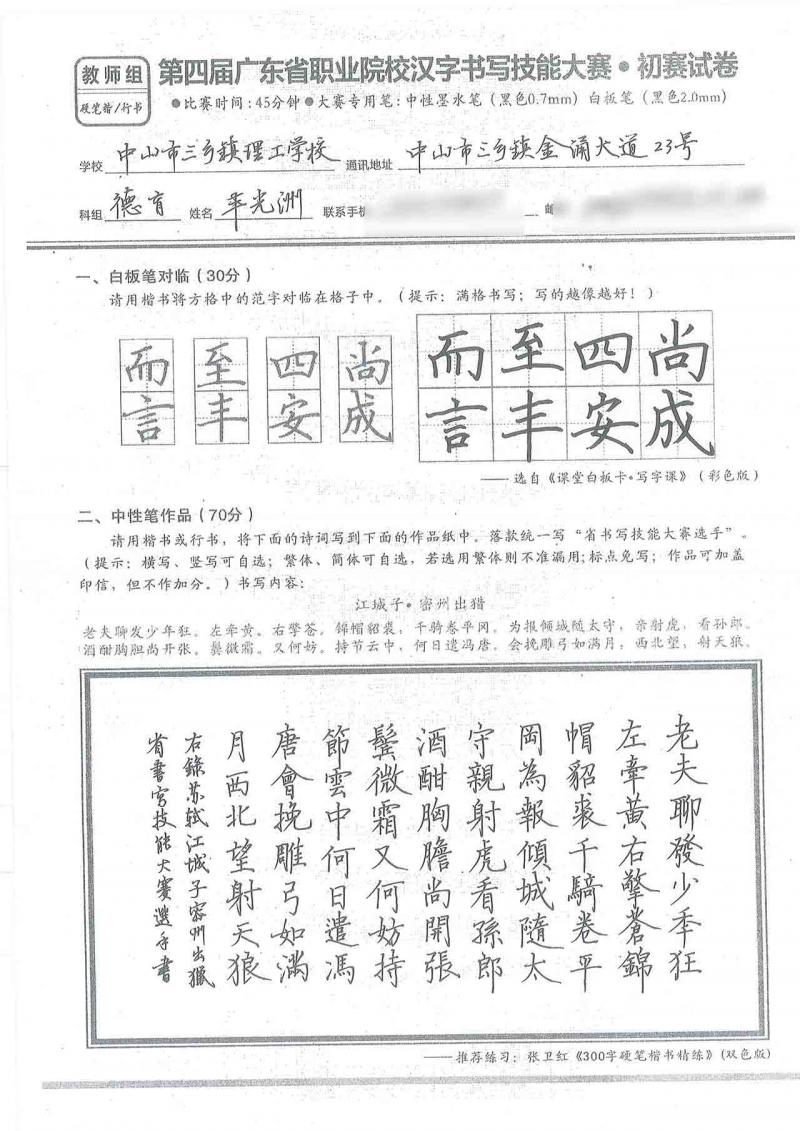 教师组
硬笔楷/行书
第四届广东省职业院校汉字书写技能大赛•初赛试卷
●比赛时间:45分钟●大赛专用笔:中性墨水笔(黑色0.7mm)白板笔(黑色2.0mm)
学校 中山市三乡镇理工学校 通讯地址 中山市三乡镇金涌大道23号
科组 德育 姓名 光洲 联系手机
一、白板笔对临(30分)
请用楷书将方格中的范字对临在格子中。(提示:满格书写;写的越像越好!)
而 至 四 尚
言 丰 安 成
而至四尚
言丰安成
——选自《课堂白板卡•写字课》(彩色版)
二、中性笔作品(70分)
请用楷书或行书,将下面的诗词写到下面的作品纸中。落款统一写“省书写技能大赛选手”。
(提示:横写、竖写可自选;繁体、简体可自选,若选用繁体则不准漏用;标点免写;作品可加盖
印信,但不作加分。)书写内容:
江城子•密州出猎
老夫聊发少年狂。左牵黄。右擎苍。锦帽貂裘,千骑卷平冈。为报倾城随太守,亲射虎,看孙郎。
酒酣胸胆尚开张。鬓微霜。又何妨。持节云中,何日遣冯唐。会挽雕弓如满月;西北望,射天狼。
老夫聊發少年狂
左牽黃右擎蒼錦
帽貂裘千騎卷平
岡為報傾城隨太
守親射虎看孫郎
酒酣胸膽尚開張
鬢微霜又何妨持
節雲中何日遣馮
唐會挽雕弓如滿
月西北望射天狼
右錄苏轼江城子密州出獵
省書写技能大赛選手書
——推荐练习:张卫红《300字硬笔楷书精练》(双色版)